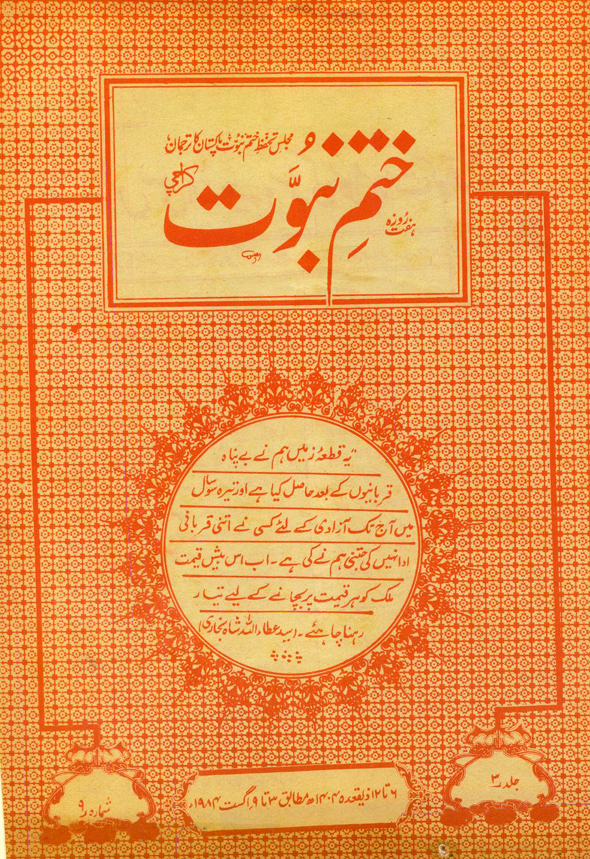 مجلس تحفظ ختم نبوت پاکستان کا ترجمان
ہفت روزہ
ختمِ نبوّت
کراچی
یہ قطعۂ زمیں ہم نے بے پناہ
قربانیوں کے بعد حاصل کیا ہے اور تیرہ سو سال
میں آج تک آزادی کے لئے کسی نے اتنی قربانی
ادا نہیں کی جتنی ہم نے کی ہے۔ اب اس بیش قیمت
ملک کو ہر قیمت پر بچانے کے لیے تیار
رہنا چاہئے۔ (سید عطاء اللہ شاہ بخاری)
جلد ۳
۶ تا ۱۲ ذیقعدہ ۱۴۰۴ھ مطابق ۳ تا ۹ اگست ۱۹۸۴ء
شمارہ ۹